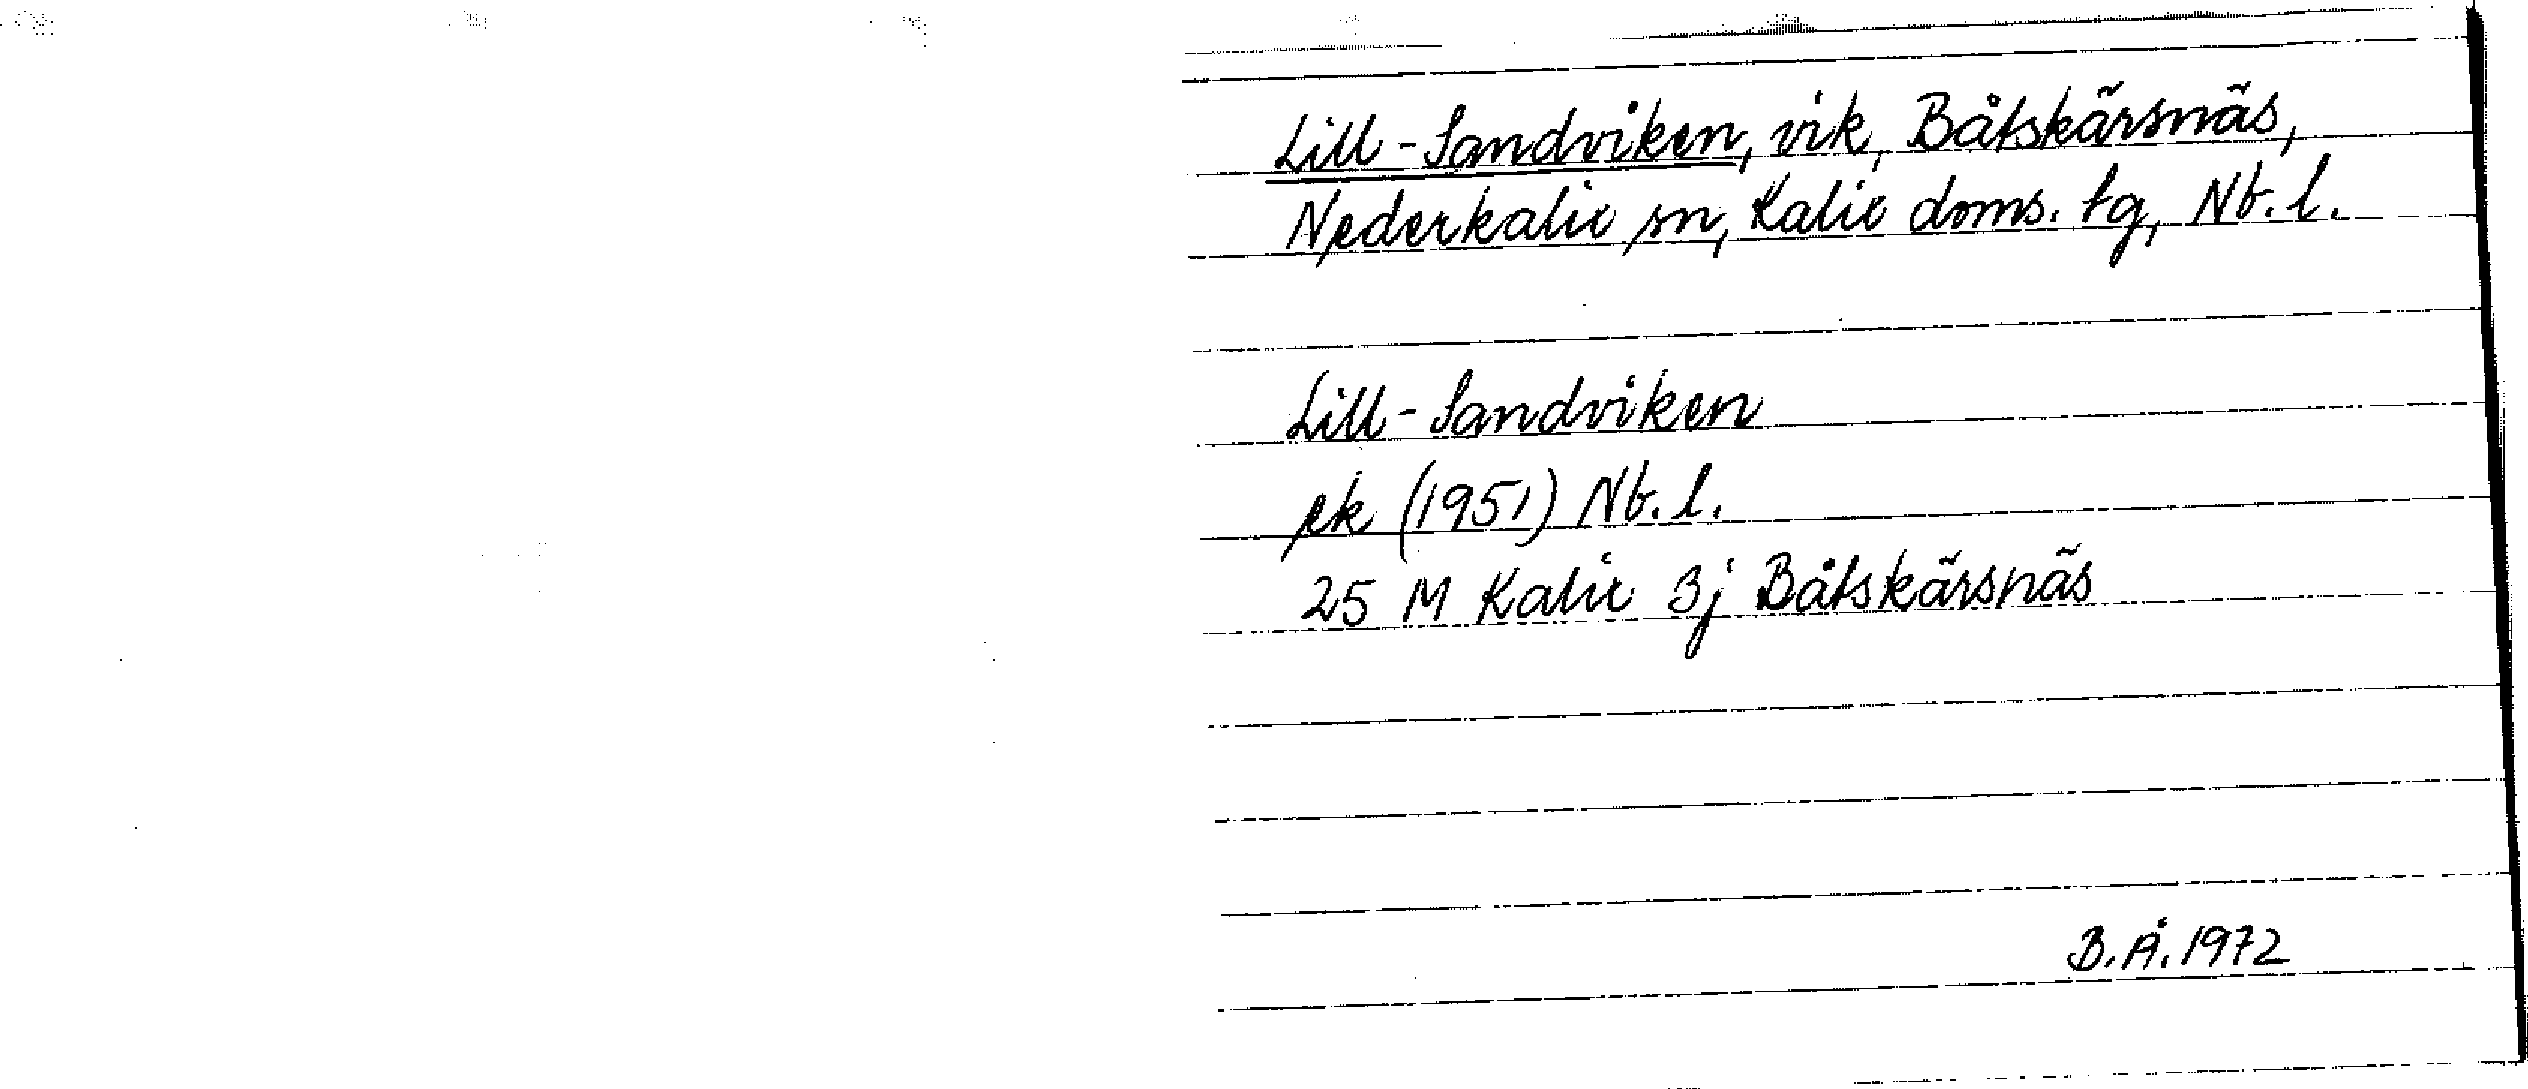 Lill-Sandviken, vik, Båtskärsnäs,
Nederkalix sn, Kalix doms. tg, Nb. l.
Lill-Sandviken
ek (1951) Nb. l.
25 M Kalix 3j Båtskärsnäs
B.Å. 1972